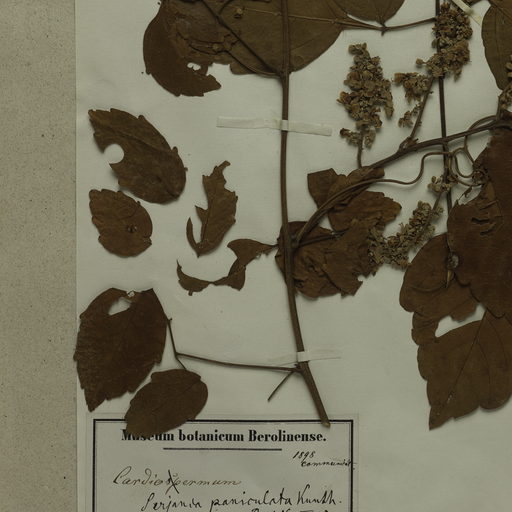 Museum botanicum Berolinense.
1898
communicat.
Cardiospermum
Serjania paniculata Kunth.